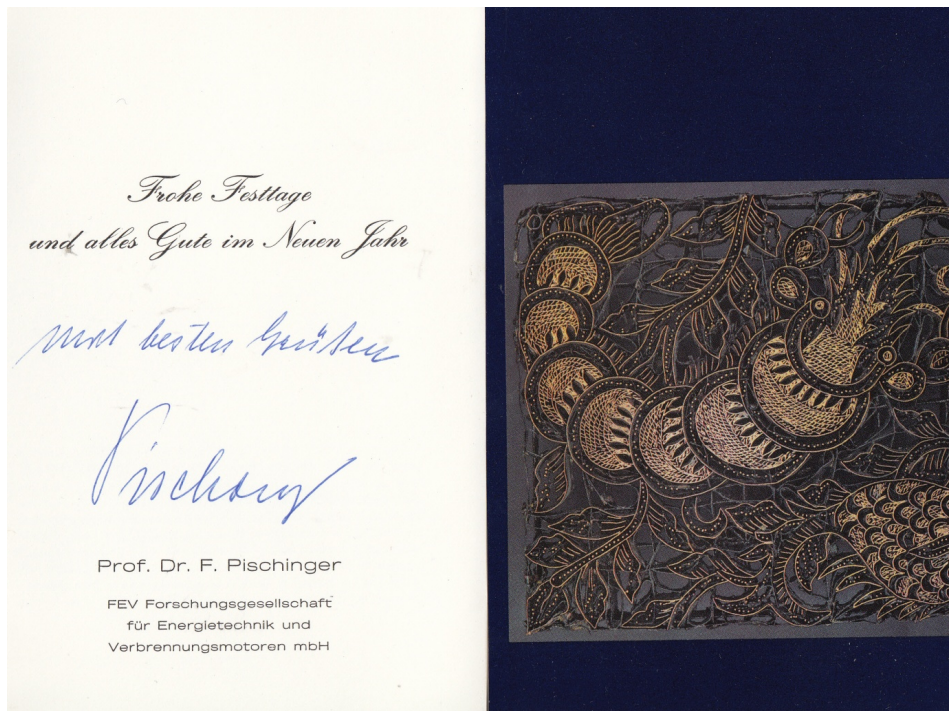 Frohe Festtage
und alles Gute im Neuen Jahr
mit besten Grüßen
Pischinger
Prof. Dr. F. Pischinger
FEV Forschungsgesellschaft
für Energietechnik und
Verbrennungsmotoren mbH